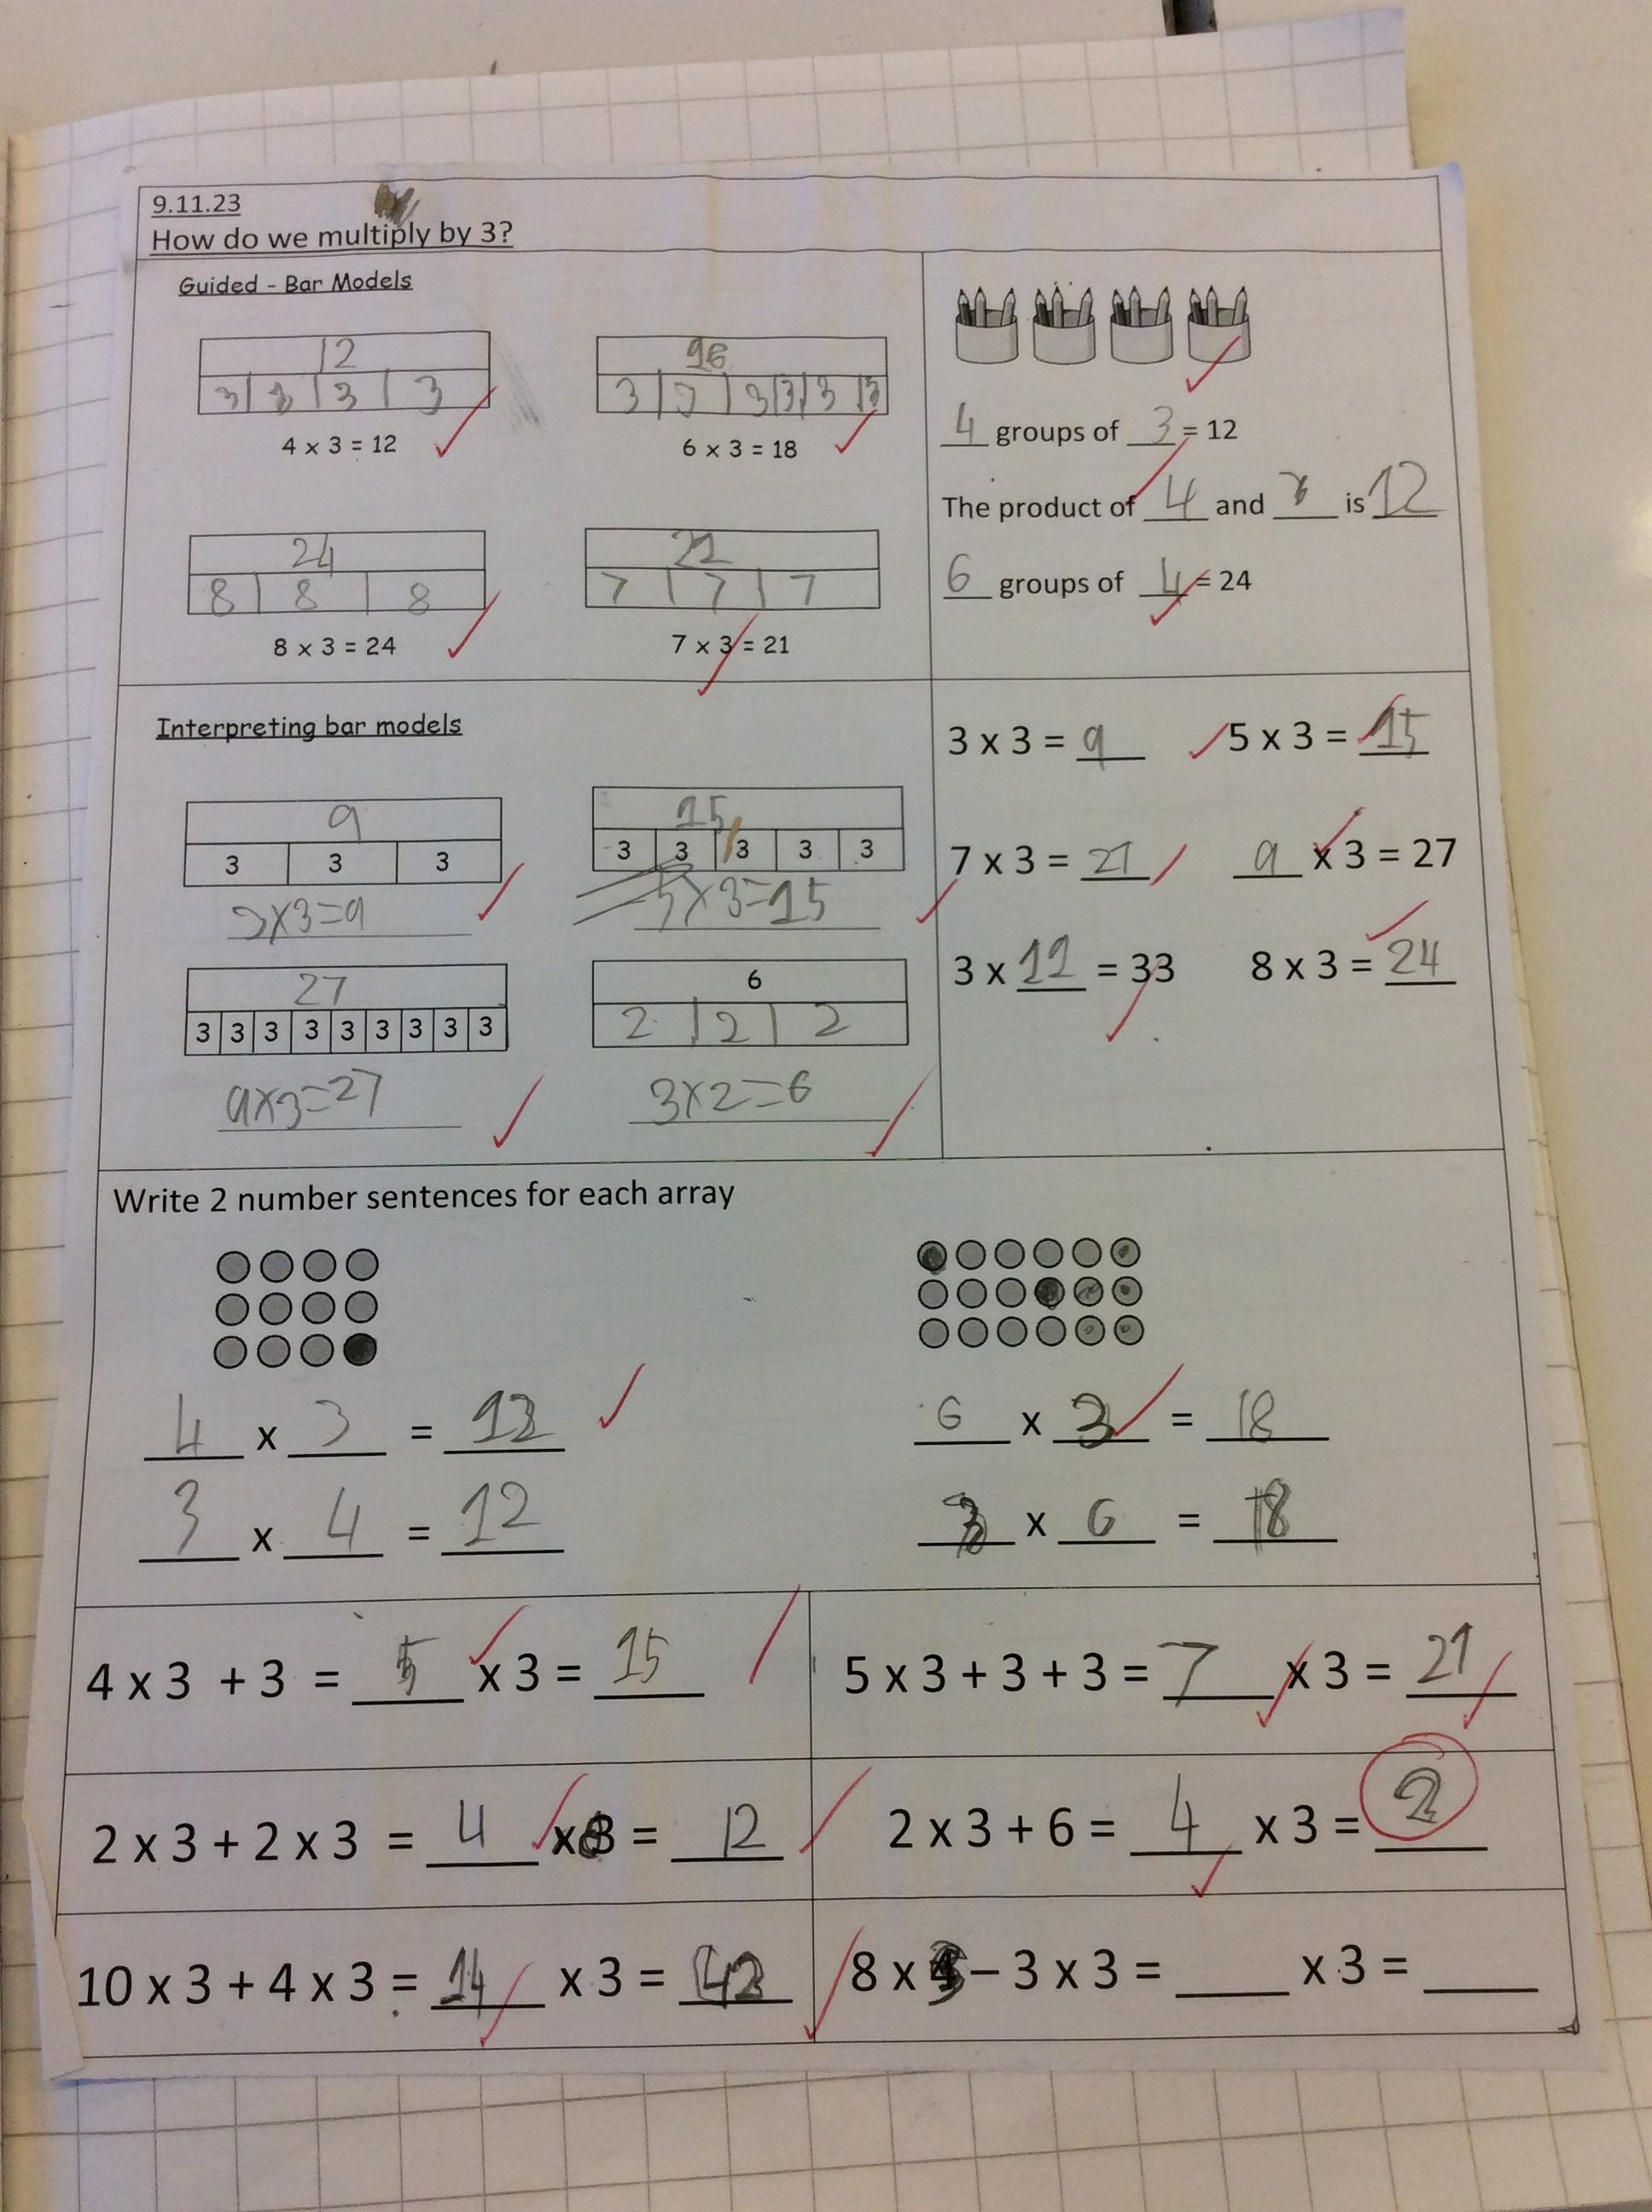 9.11.23
How do we multiply by 3?
Guided - Bar Models
12
3 3 3 3
4 x 3 = 12
3 3 3 3 3 3
6 x 3 = 18
24
8 8 8
8 x 3 = 24
7 7 7
7 x 3 = 21
4 groups of 3 = 12
The product of 4 and is 12
6 groups of 4 = 24
Interpreting bar models
9
3 3 3
3x3=9
15
3 3 3 3 3
5x3=15
27
3 3 3 3 3 3 3 3 3
9x3=27
6
2 2 2
3x2=6
3 x 3 = 9 5 x 3 = 15
7 x 3 = 21 9 x 3 = 27
3 x = 33 8 x 3 = 24
Write 2 number sentences for each array
4 x 3 = 12
3 x 4 = 12
6 x 3 = 18
3 x 6 = 18
4 x 3 + 3 = 5 x 3 = 15
5 x 3 + 3 + 3 = 7 x 3 = 21
2 x 3 + 2 x 3 = 4 x 3 = 12
2 x 3 + 6 = 4 x 3 = 2
10 x 3 + 4 x 3 = 14 x 3 = 42
8 x 3 – 3 x 3 = ____ x 3 = ____